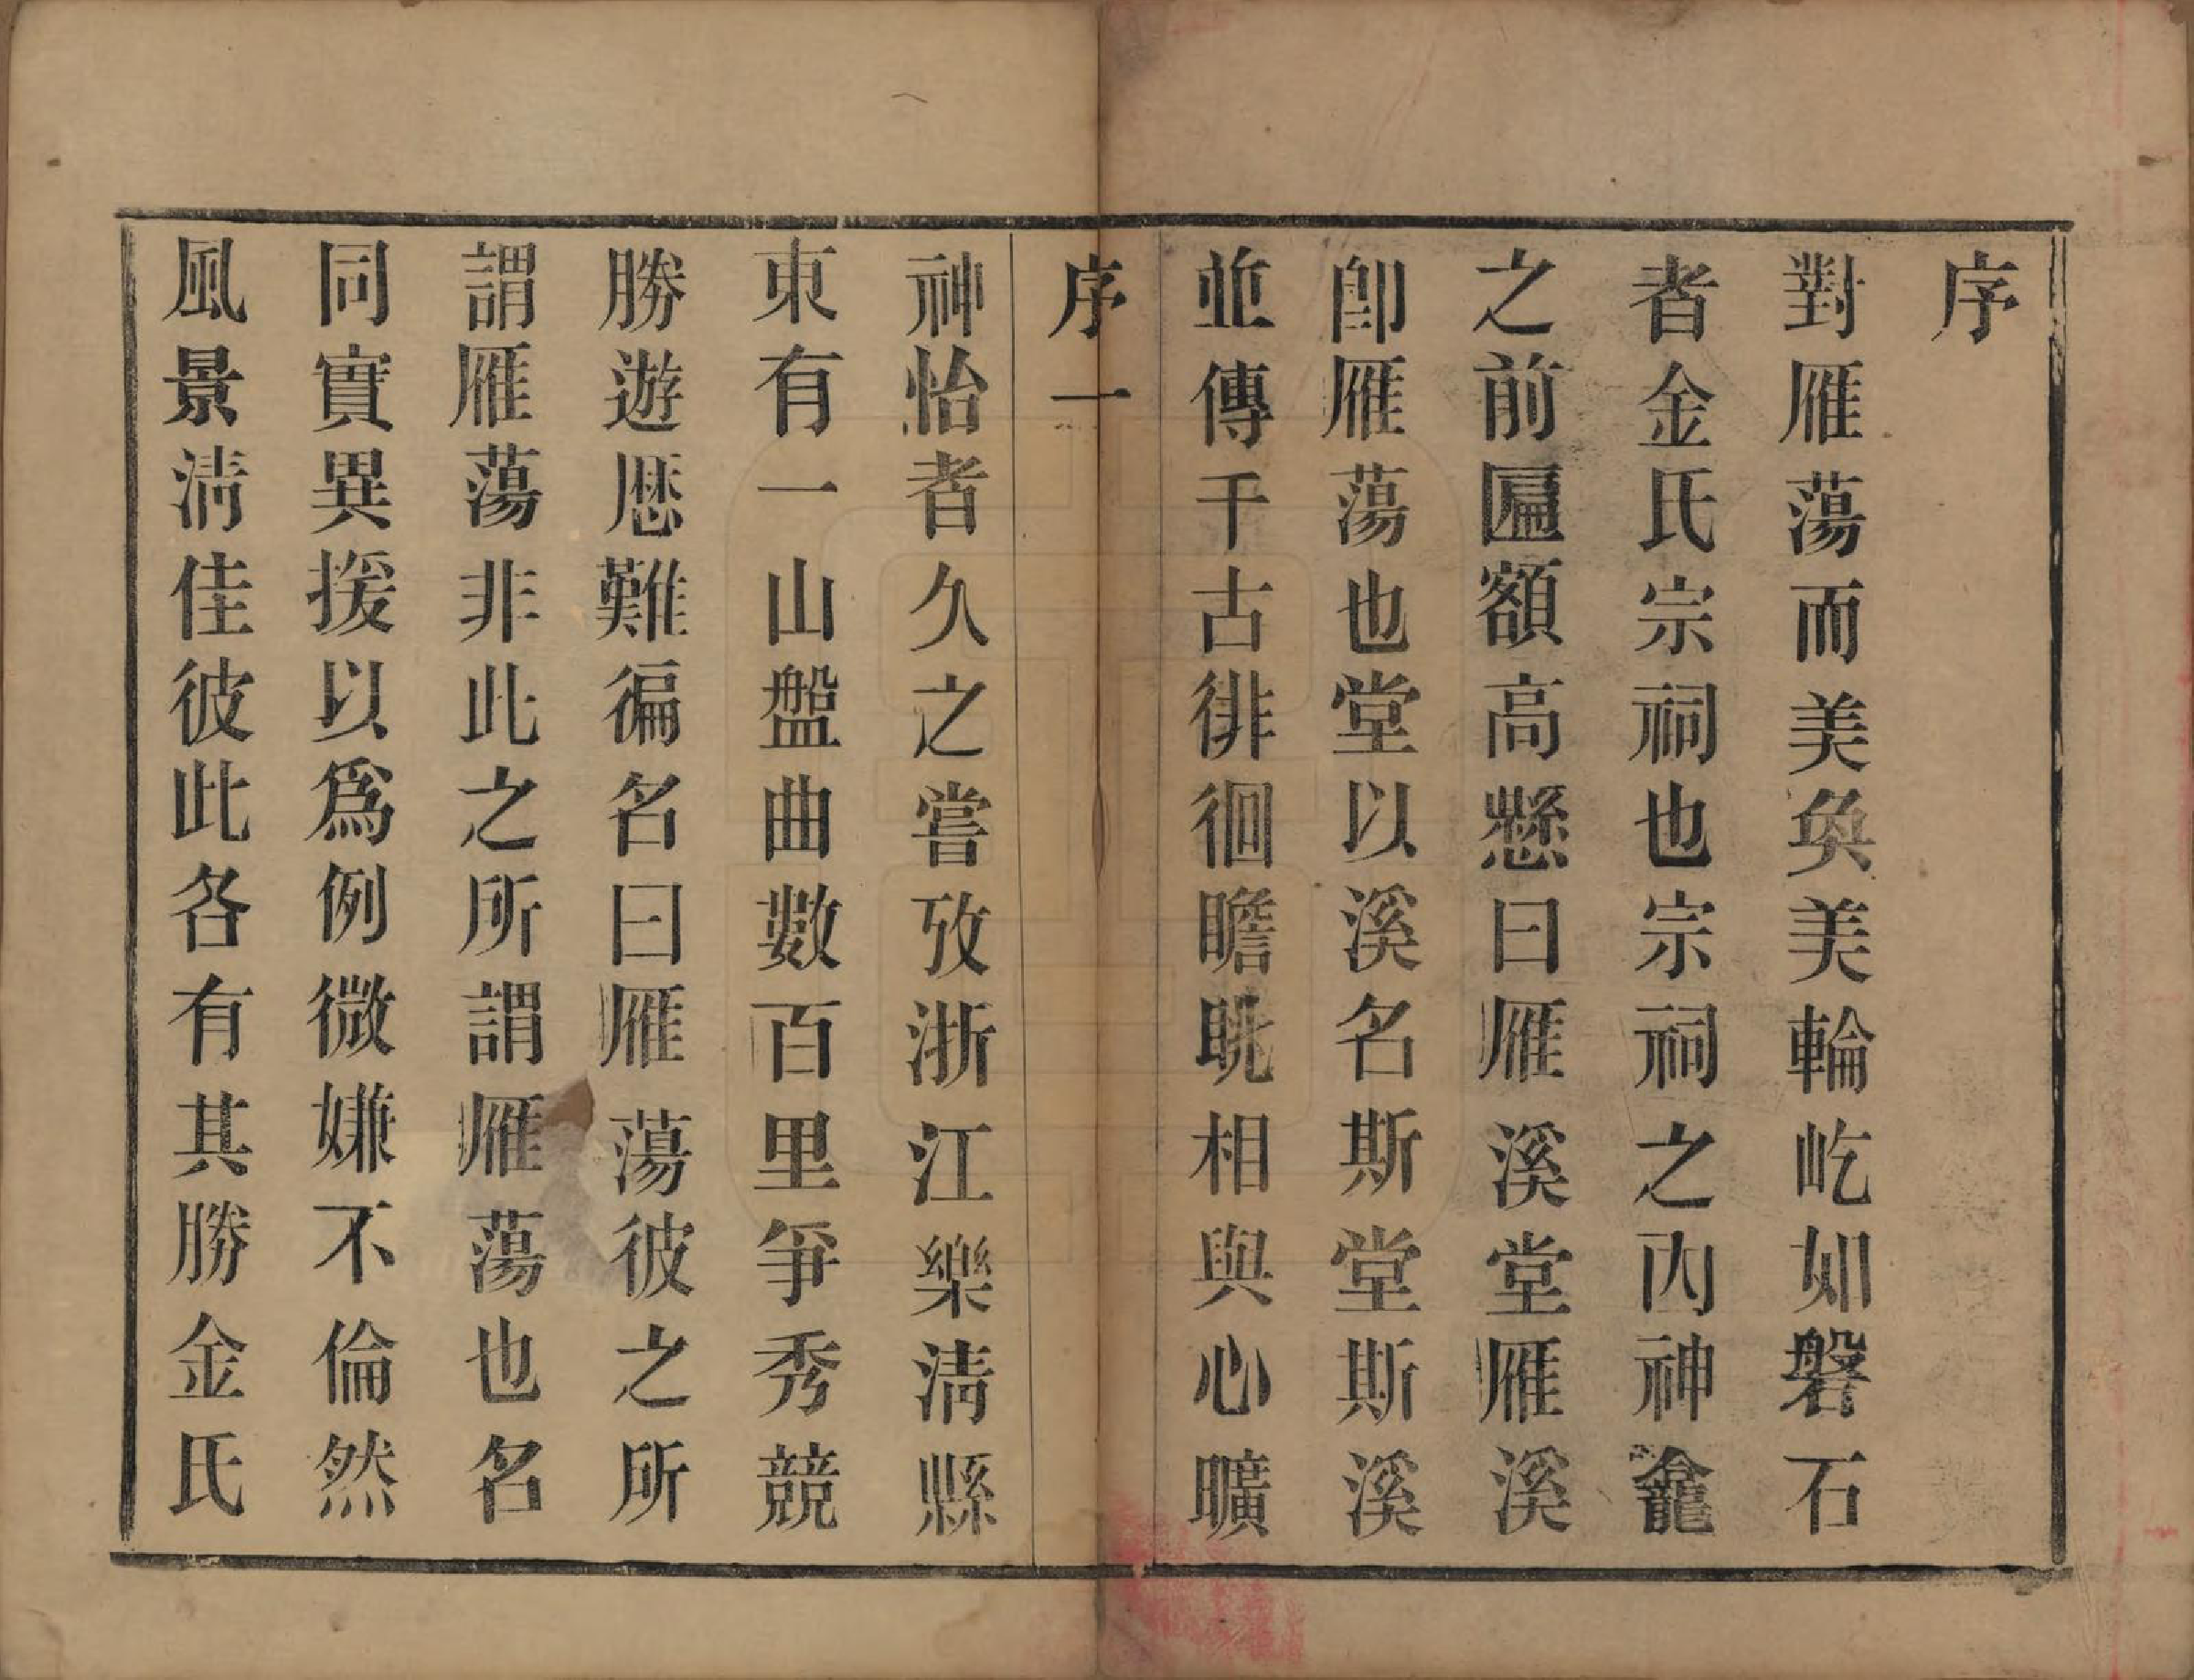 序
對雁蕩而美奐美輪屹如磐石
者金氏宗祠也宗祠之內神龕
之前匾額高懸曰雁溪堂雁溪
卽雁蕩也堂以溪名斯堂斯溪
並傳千古徘徊瞻眺相與心曠
序一
神怡者久之嘗攷浙江樂淸縣
東有一山盤曲數百里爭秀競
勝遊厯難徧名曰雁蕩彼之所
謂雁蕩非此之所謂雁蕩也名
同實異援以爲例微嫌不倫然
風景淸佳彼此各有其勝金氏